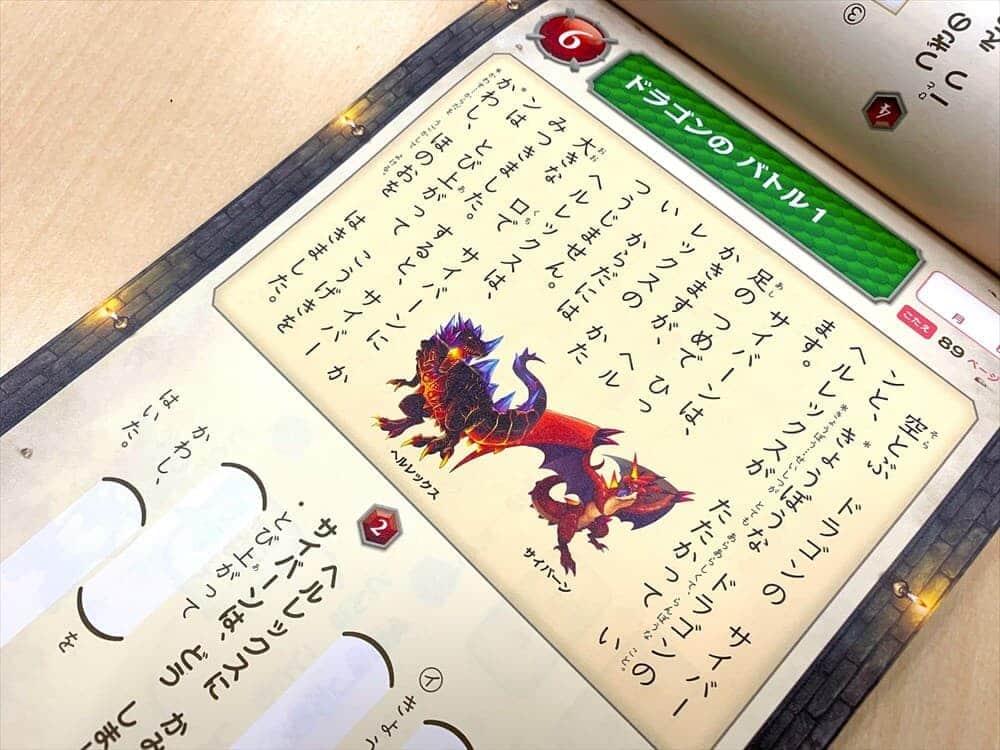 6
ドラゴンの バトル1
月
こたえ 89 ページ
空とぶ ドラゴンの サイバー
ンと、*きょうぼうな ドラゴンの
ヘルレックスが たたかってい
ます。
サイバーンは、
足の つめで ひっ
かきますが、ヘル
レックスの かた
い からだには
つうじません。
ヘルレックスは、
大きな 口で サイバーンに か
みつきました。すると、サイバー
ンは とび上がって こうげきを
*かわし、ほのおを はきました。
*きょうぼう…せいしつが とても あらあらしくて、らんぼうな こと。
ヘルレックス
サイバーン
2
ヘルレックスに かみ
サイバーンは、どう しま
・とび上がって
を
かわし、
はいた。
イ
③